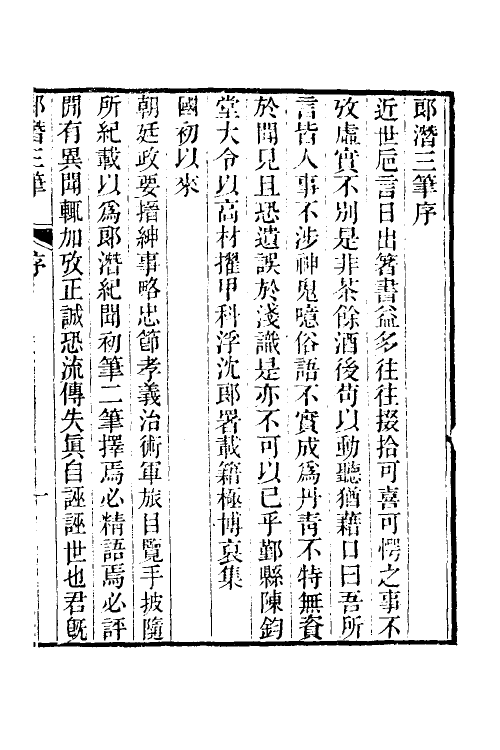 郎潛三筆序
近世巵言日出箸書益多往往掇拾可喜可愕之事不
攷虛實不別是非茶餘酒後苟以動聽猶藉口曰吾所
言皆人事不涉神鬼噫俗語不實成爲丹靑不特無資
於聞見且恐遺誤於淺識是亦不可以已乎鄞縣陳鈞
堂大令以高材擢甲科浮沈郎署載籍極博裒集
國初以來
朝廷政要搢紳事略忠節孝義治術軍旅日覽手披隨
所紀載以爲郎潛紀聞初筆二筆擇焉必精語焉必評
閒有異聞輒加攷正誠恐流傳失眞自誣誣世也君旣
郎潛三筆 序 一